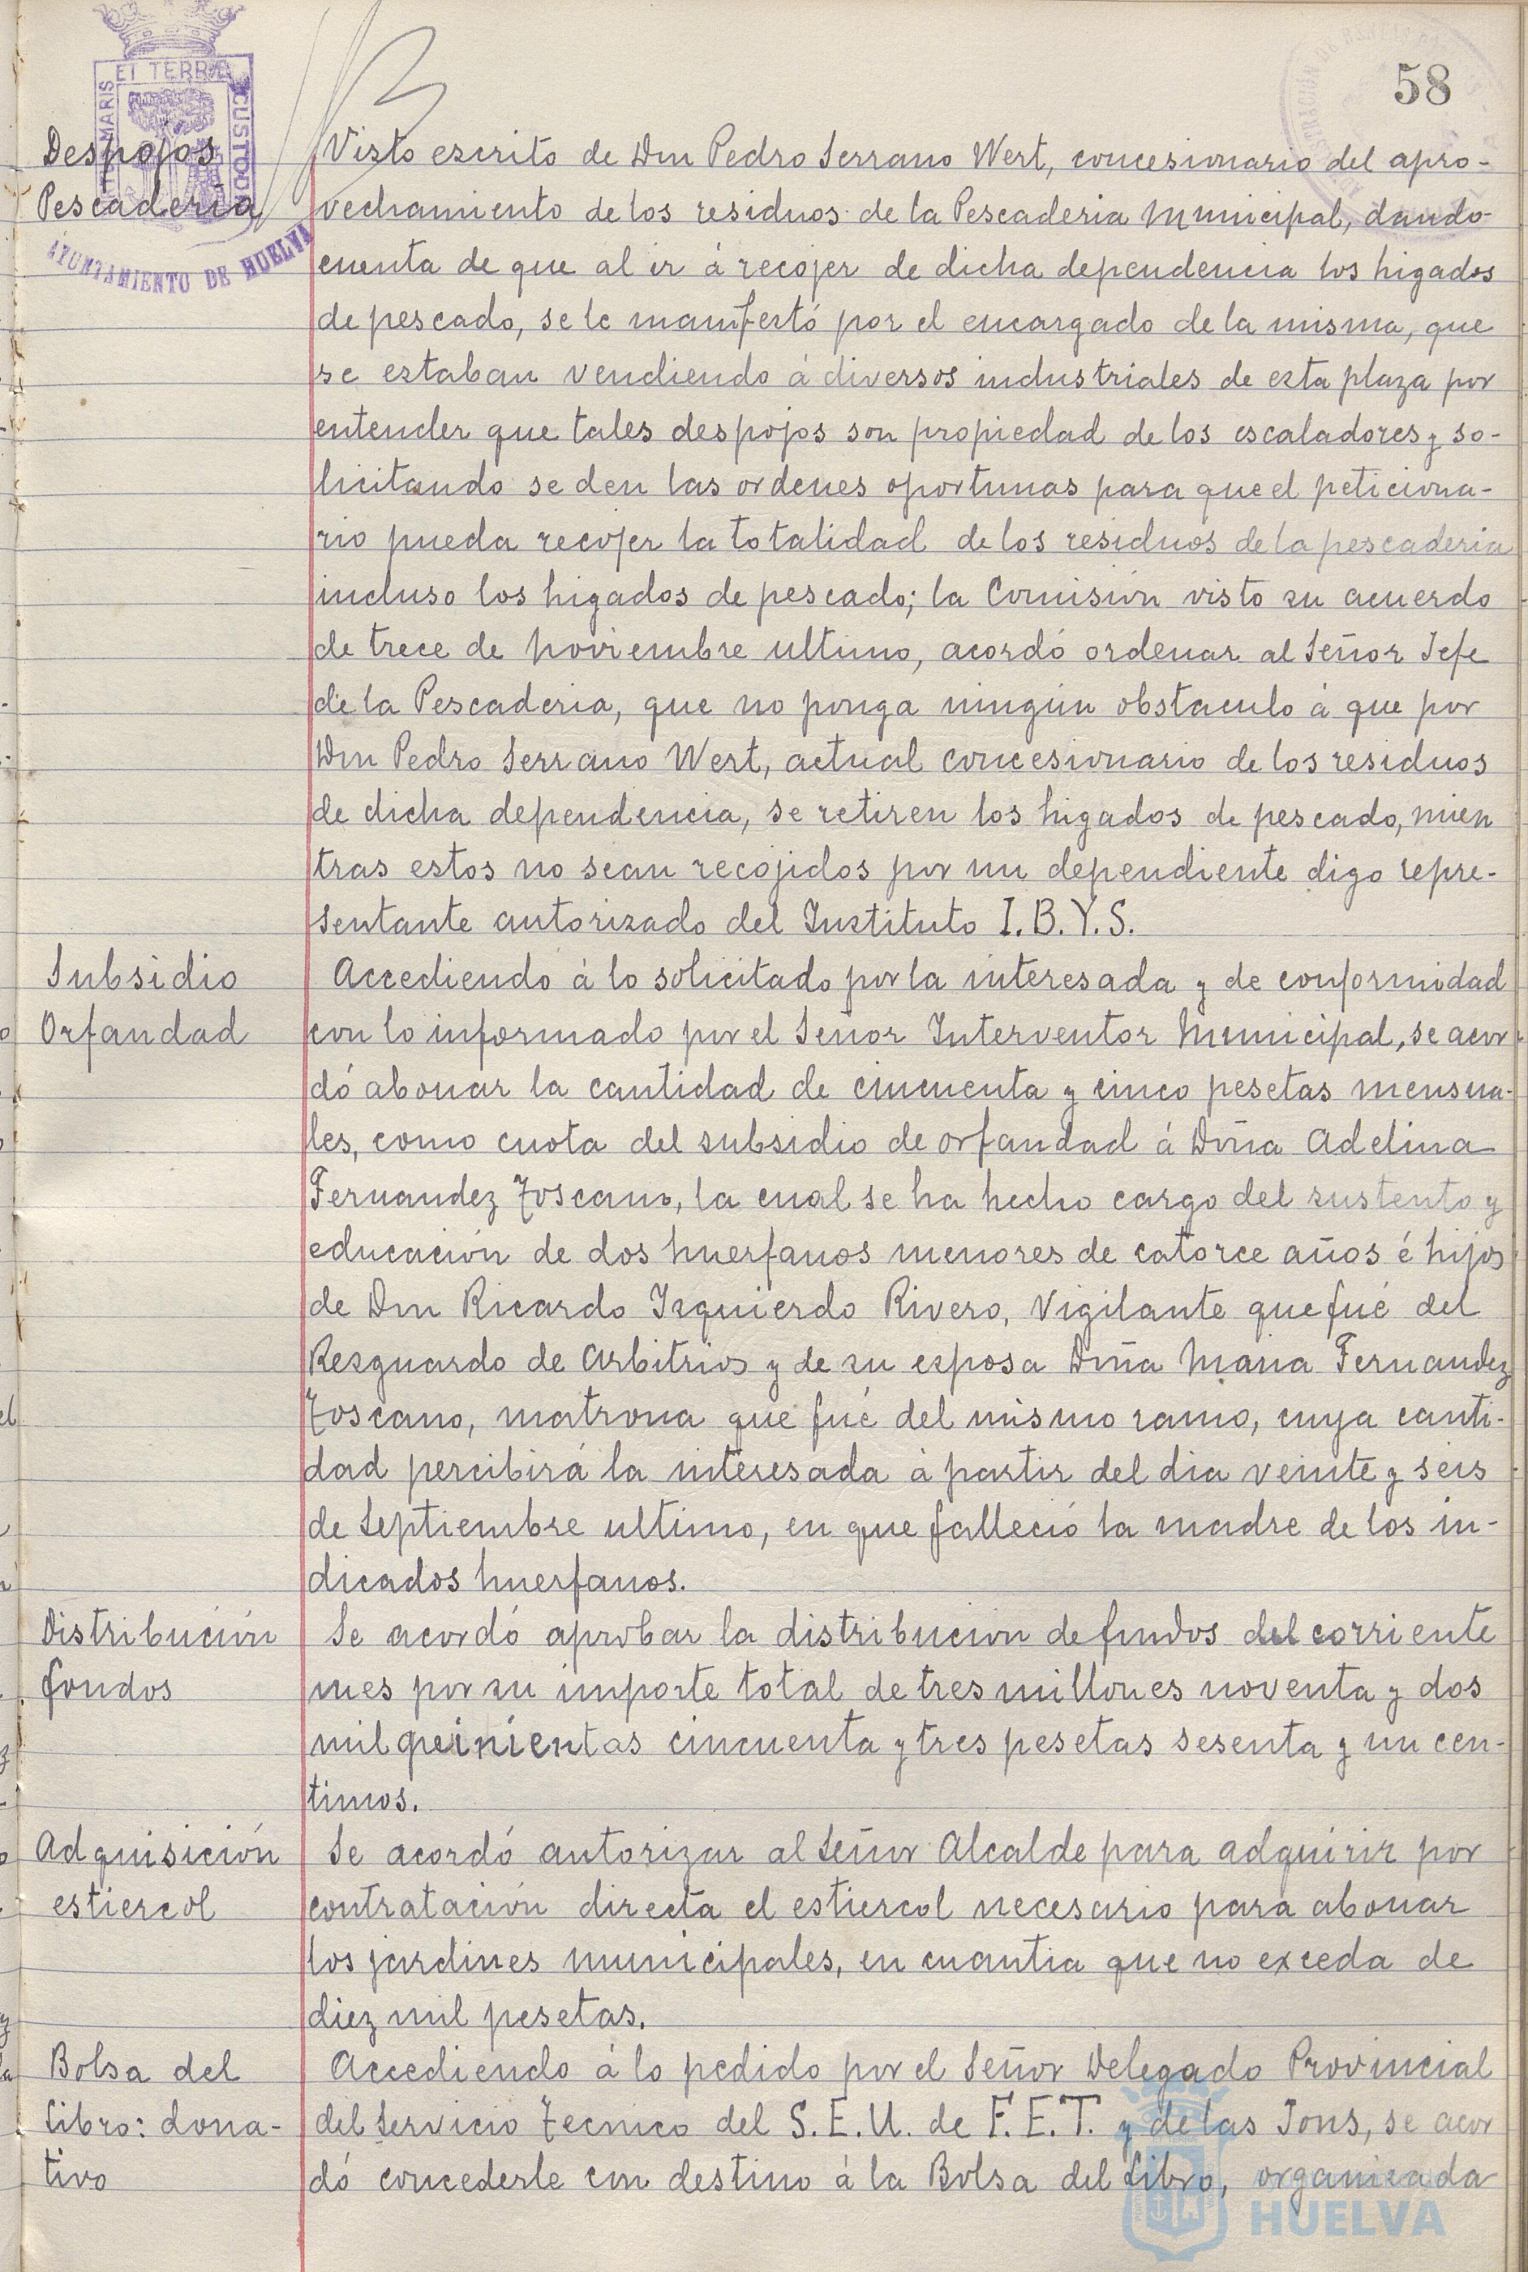 58
MARIS ET TERRE CUSTODUM
AYUNTAMIENTO DE HUELVA
Despojos
Pescaderia
Visto escrito de Don Pedro Serrano Wert, concesionario del apro-
vechamiento de los residuos de la Pescaderia Municipal, dando
cuenta de que al ir á recojer de dicha dependencia los higados
de pescado, se le manifestó por el encargado de la misma, que
se estaban vendiendo á diversos industriales de esta plaza por
entender que tales despojos son propiedad de los escaladores y so-
licitando se den las ordenes oportunas para que el peticiona-
rio pueda recojer la totalidad de los residuos de la pescaderia
incluso los higados de pescado; la Comisión visto su acuerdo
de trece de Noviembre ultimo, acordó ordenar al Señor Jefe
de la Pescaderia, que no ponga ningún obstaculo á que por
Don Pedro Serrano Wert, actual concesionario de los residuos
de dicha dependencia, se retiren los higados de pescado, mien
tras estos no sean recojidos por un dependiente digo repre-
sentante autorizado del Instituto I.B.Y.S.
Subsidio
Orfandad
Accediendo á lo solicitado por la interesada y de conformidad
con lo informado por el Señor Interventor Municipal, se acor
dó abonar la cantidad de cincuenta y cinco pesetas mensua-
les, como cuota del subsidio de orfandad á Doña Adelina
Fernandez Toscano, la cual se ha hecho cargo del sustento y
educación de dos huerfanos menores de catorce años é hijos
de Don Ricardo Izquierdo Rivero, Vigilante que fué del
Resguardo de Arbitrios y de su esposa Doña Maria Fernandez
Toscano, matrona que fué del mismo ramo, cuya canti-
dad percibirá la interesada á partir del dia veinte y seis
de Septiembre ultimo, en que falleció la madre de los in-
dicados huerfanos.
Distribución
fondos
Se acordó aprobar la distribucion de fondos del corriente
mes por su importe total de tres millones noventa y dos
mil queinientas cincuenta y tres pesetas sesenta y un cen-
timos.
Adquisición
estiercol
Se acordó autorizar al Señor Alcalde para adquirir por
contratación directa el estiercol necesario para abonar
los jardines municipales, en cuantia que no exceda de
diez mil pesetas.
Bolsa del
Libro: dona-
tivo
Accediendo á lo pedido por el Señor Delegado Provincial
del Servicio Tecnico del S.E.U. de F.E.T. y de las Jons, se acor
dó concederle con destino á la Bolsa del Libro, organizada
HUELVA